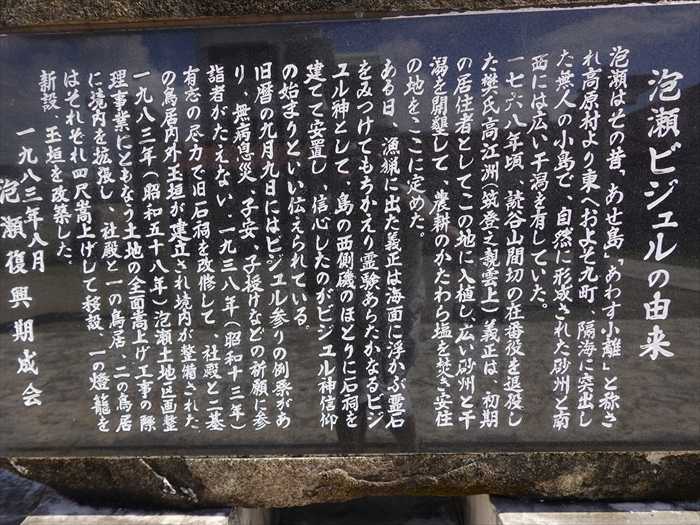 泡瀬ビジュルの由来
泡瀬はその昔「あせ島」「あわす小離」と称さ
れ高原村より東へおよそ九町、隔海に突出し
た無人の小島で、自然に形成された砂州と南
西には広い干潟を有していた。
一七六八年頃、読谷山間切の在番役を退役し
た樊氏高江洲(筑登之親雲上)義正は、初期
の居住者としてこの地に入植し、広い砂州と干
潟を開墾して、農耕のかたわら塩を焚き安住
の地をここに定めた。
ある日、漁猟に出た義正は海面に浮かぶ霊石
をみつけてもちかえり霊験あらたかなるビジ
ュル神として、島の西側磯のほとりに石祠を
建てて安置し、信心したのがビジュル神信仰
の始まりといい伝えられている。
旧暦の九月九日にはビジュル参りの例祭があ
り、無病息災、子安、子授けなどの祈願に参
詣者がたえない。一九三八年(昭和十三年)
有志の尽力で旧石祠を改修して、社殿と二基
の鳥居内外玉垣が建立され境内が整備された。
一九八三年(昭和五十八年)泡瀬土地区画整
理事業にともなう土地の全面嵩上げ工事の際
に境内を拡張し、社殿と一の鳥居、二の鳥居
はそれぞれ四尺嵩上げして移設、一の燈籠を
新設、玉垣を改築した。
一九八三年八月
泡瀬復興期成会